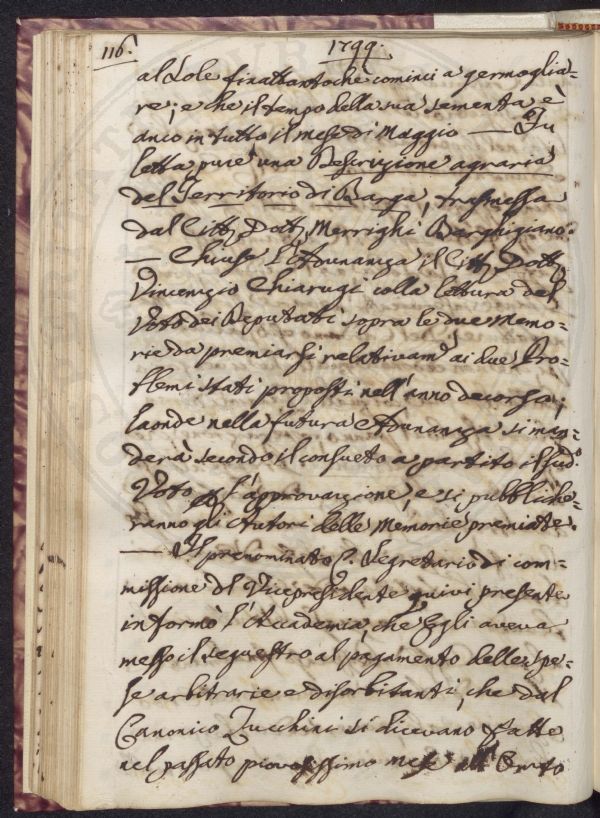 116.
1799.
al Sole finattantochè cominci a germoglia-
re; e che il tempo della sua sementa è
anco in tutto il mese di Maggio — Fu
letta pure una Descrizione agraria
del Territorio di Barga, trasmessa
dal Citt. Dott. Merrighi Barghigiano.
— Chiuse l'Adunanza il Citt. Dott.
Vincenzio Chiarugi colla lettura del
Voto dei Deputati sopra le due Memo-
rie da premiarsi relativam.e ai due Pro-
blemi stati proposti nell'anno decorso;
laonde nella futura Adunanza si man-
derà secondo il consueto a partito il sud.o
Voto l'approvazione, e si pubbliche-
ranno gli Autori delle Memorie premiate.
— Il prenominato S. Segretario di com-
missione del Vicepresidente quivi presente
informò l'Accademia, che Egli aveva
messo il seguestro al pagamento delle spe-
se arbitrarie e disorbitanti, che dal
Canonico Zucchini si dicevano fatte
nel passato piovosissimo mese Orto